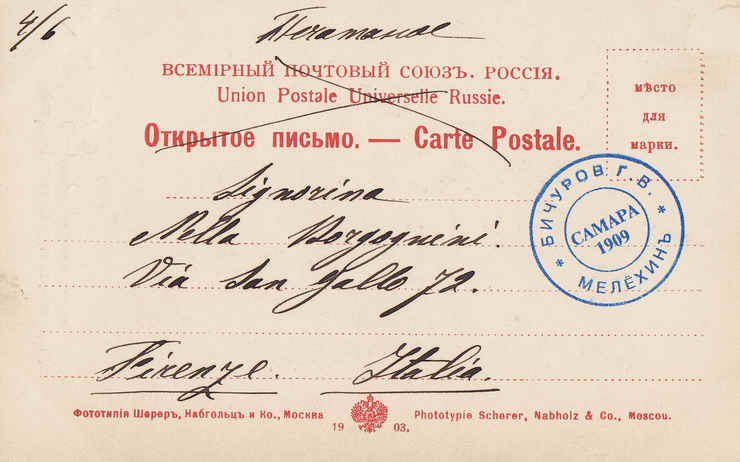 4/6
Печатное
ВСЕМІРНЫЙ ПОЧТОВЫЙ СОЮЗЪ. РОССІЯ.
Union Postale Universelle Russie.
Открытое письмо. — Carte Postale.
мѣсто
для
марки.
Signorina
Nella Borgognini.
Via San Gallo 72.
Firenze. Italia.
* БИЧУРОВ Г. В. *
САМАРА
1909
МЕЛЁХИНЪ
Фототипія Шереръ, Набгольцъ и Ко., Москва
Phototypie Scherer, Nabholz & Co., Moscou.
19 03.